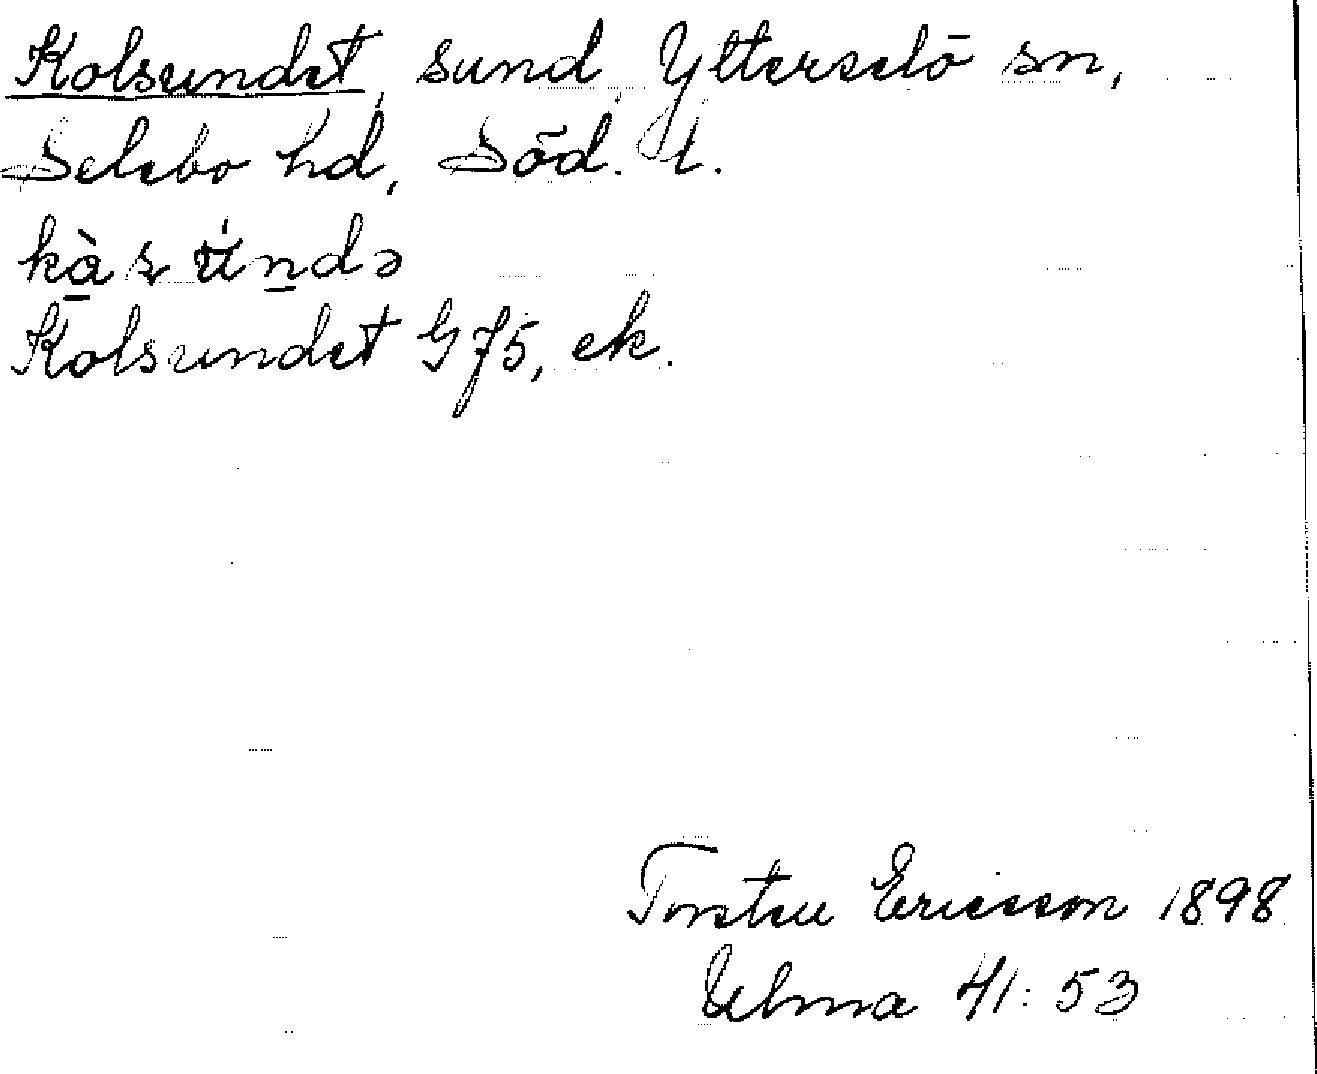 Kolsundet, sund, Ytterselö sn,
Selebo hd, Söd. l.
Kolsundet G 75, ek.
Torsten Ericsson 1898
Ulma 41:53